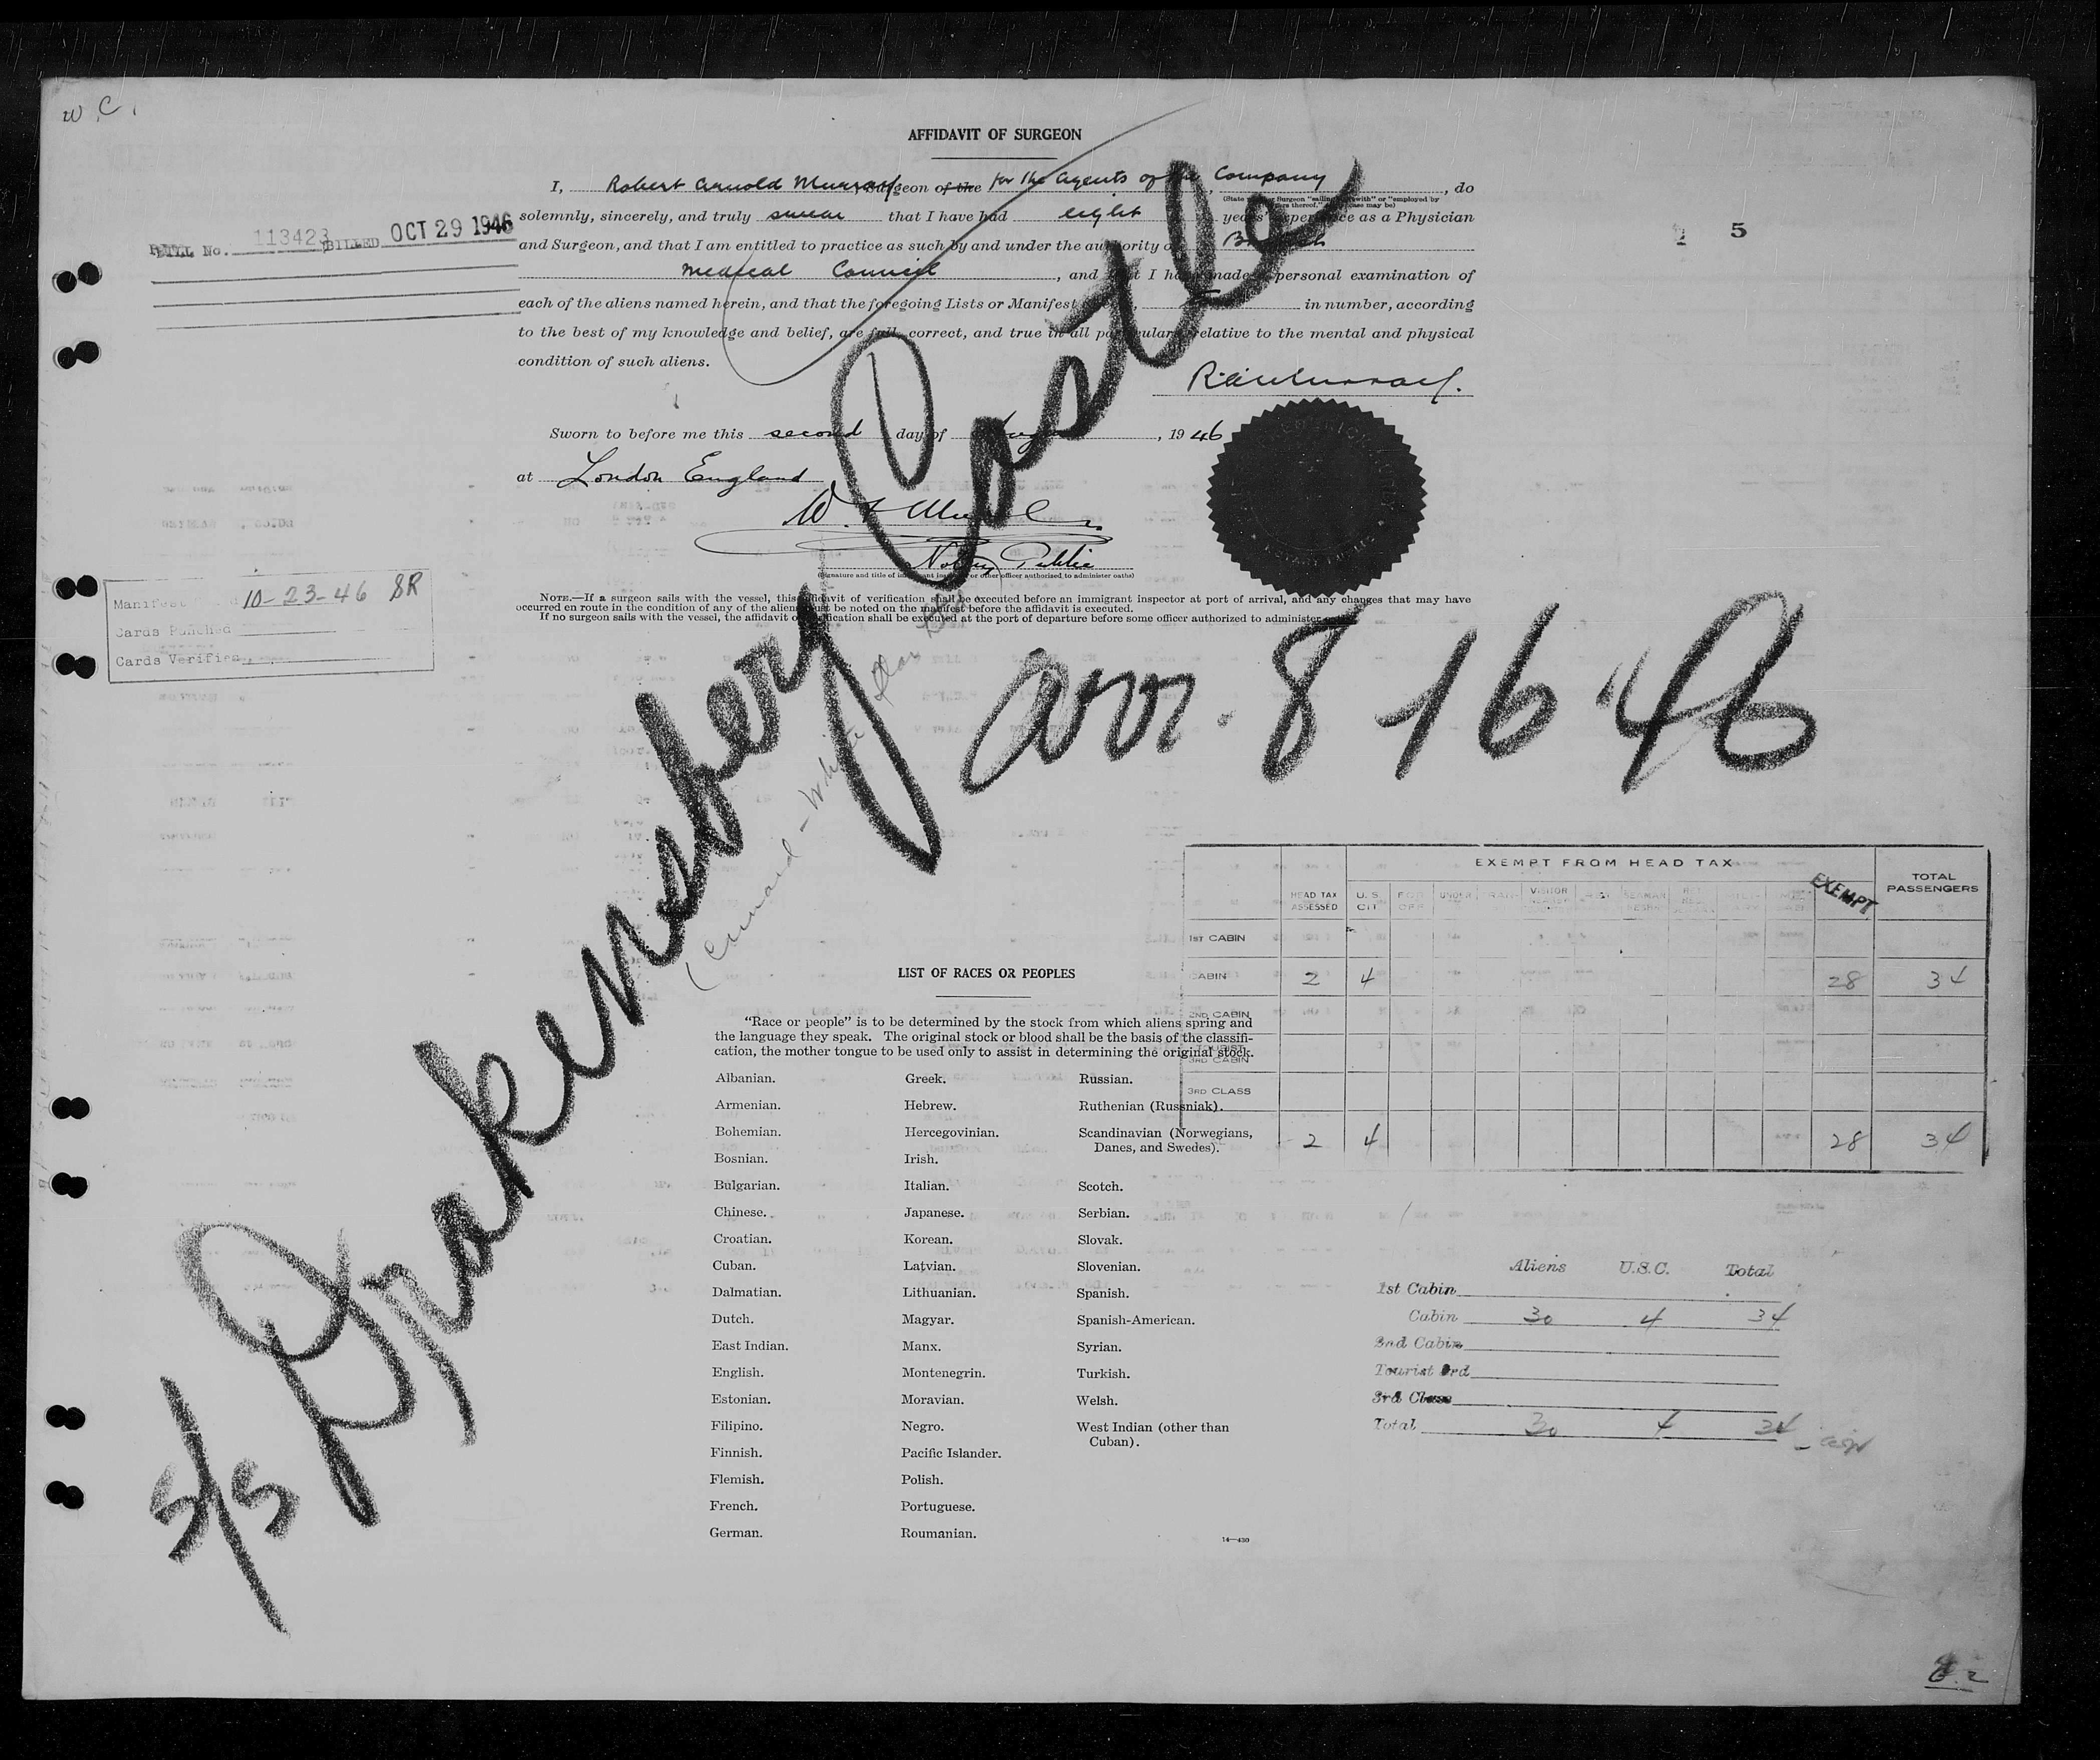 W.C.
AFFIDAVIT OF SURGEON
I, Robert Arnold Murray, Surgeon of the for the Agents of the Company, do
(State whether Surgeon "sailing therewith" or "employed by owners thereof," as the case may be)
solemnly, sincerely, and truly swear that I have had eight years' experience as a Physician
and Surgeon, and that I am entitled to practice as such by and under the authority of British
Medical Council, and that I have made a personal examination of
each of the aliens named herein, and that the foregoing Lists or Manifest in number, according
to the best of my knowledge and belief, are full, correct, and true in all particulars relative to the mental and physical
condition of such aliens.
R. A. Murray.
BILL No. 113423 BILLED OCT 29 1946
5
Sworn to before me this second day of August, 1946
at London England
Notary Public
(Signature and title of immigrant inspector or other officer authorized to administer oaths)
NOTE.—If a surgeon sails with the vessel, this affidavit of verification shall be executed before an immigrant inspector at port of arrival, and any changes that may have
occurred en route in the condition of any of the aliens must be noted on the manifest before the affidavit is executed.
If no surgeon sails with the vessel, the affidavit of verification shall be executed at the port of departure before some officer authorized to administer oaths.
Manifest 10-23-46 SR
Cards Punched
Cards Verified
s/s Drakensberg Castle
(Cunard - White Star
arr. 8-16-46
EXEMPT FROM HEAD TAX
HEAD TAX ASSESSED U.S. CIT FOR OFF UNDER VISITOR EXEMPT TOTAL PASSENGERS
1ST CABIN
CABIN 2 4 28 34
2ND CABIN
TOURIST 3RD CABIN
3RD CLASS
2 4 28 34
LIST OF RACES OR PEOPLES
"Race or people" is to be determined by the stock from which aliens spring and
the language they speak. The original stock or blood shall be the basis of the classifi-
cation, the mother tongue to be used only to assist in determining the original stock.
Albanian.
Armenian.
Bohemian.
Bosnian.
Bulgarian.
Chinese.
Croatian.
Cuban.
Dalmatian.
Dutch.
East Indian.
English.
Estonian.
Filipino.
Finnish.
Flemish.
French.
German.
Greek.
Hebrew.
Hercegovinian.
Irish.
Italian.
Japanese.
Korean.
Latvian.
Lithuanian.
Magyar.
Manx.
Montenegrin.
Moravian.
Negro.
Pacific Islander.
Polish.
Portuguese.
Roumanian.
Russian.
Ruthenian (Russniak).
Scandinavian (Norwegians,
Danes, and Swedes).
Scotch.
Serbian.
Slovak.
Slovenian.
Spanish.
Spanish-American.
Syrian.
Turkish.
Welsh.
West Indian (other than
Cuban).
14—430
Aliens U.S.C. Total
1st Cabin
Cabin 30 4 34
2nd Cabin
Tourist 3rd
3rd Class
Total 30 4 34